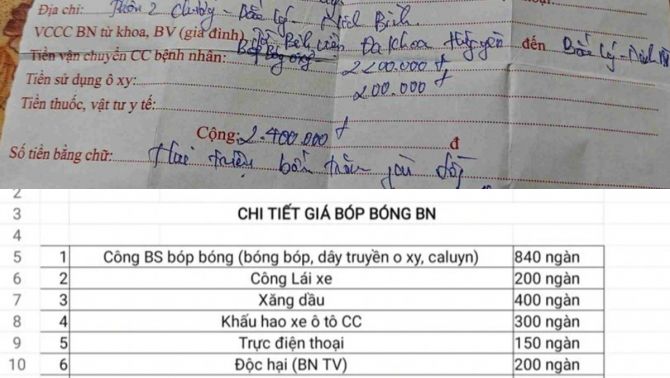 Địa chỉ: Thôn 2 Chương - Bắc Lý - Ninh Bình
VCCC BN từ khoa, BV (gia đình) Bệnh viện Đa khoa đến Bắc Lý - Ninh
Tiền vận chuyển CC bệnh nhân: Bóp bóng 2200.000 đ
Tiền sử dụng ô xy: 200.000 đ
Tiền thuốc, vật tư y tế:
Cộng: 2.400.000 đ đ
Số tiền bằng chữ: Hai triệu bốn trăm đồng
2
3 CHI TIẾT GIÁ BÓP BÓNG BN
4
5 1 Công BS bóp bóng (bóng bóp, dây truyền o xy, caluyn) 840 ngàn
6 2 Công Lái xe 200 ngàn
7 3 Xăng dầu 400 ngàn
8 4 Khấu hao xe ô tô CC 300 ngàn
9 5 Trực điện thoại 150 ngàn
10 6 Độc hại (BN TV) 200 ngàn